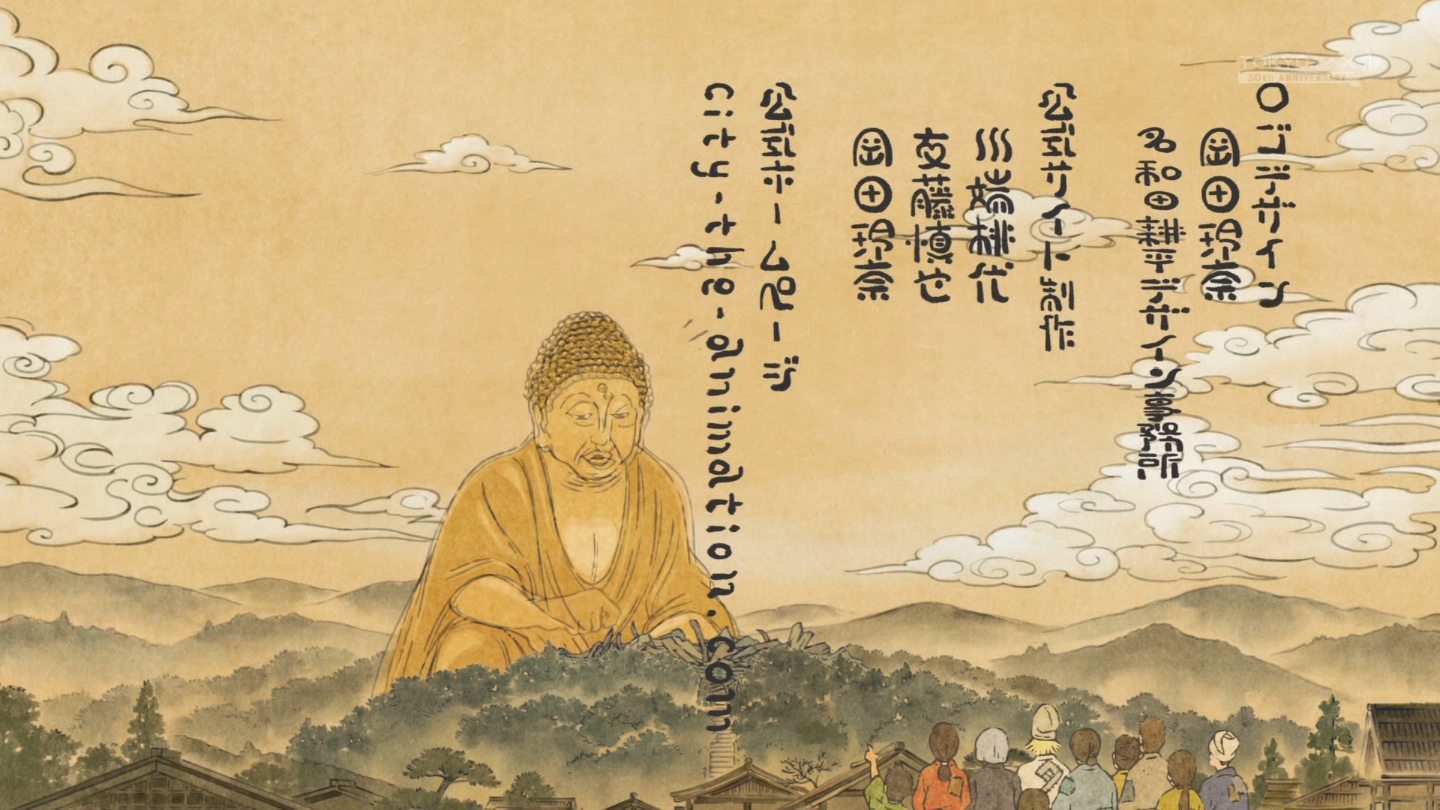 ロゴデザイン
岡田玲奈
名和田耕平デザイン事務所
公式サイト制作
友藤慎也
岡田玲奈
公式ホームページ
city-the-animation.com
TOKYO MX
30th ANNIVERSARY